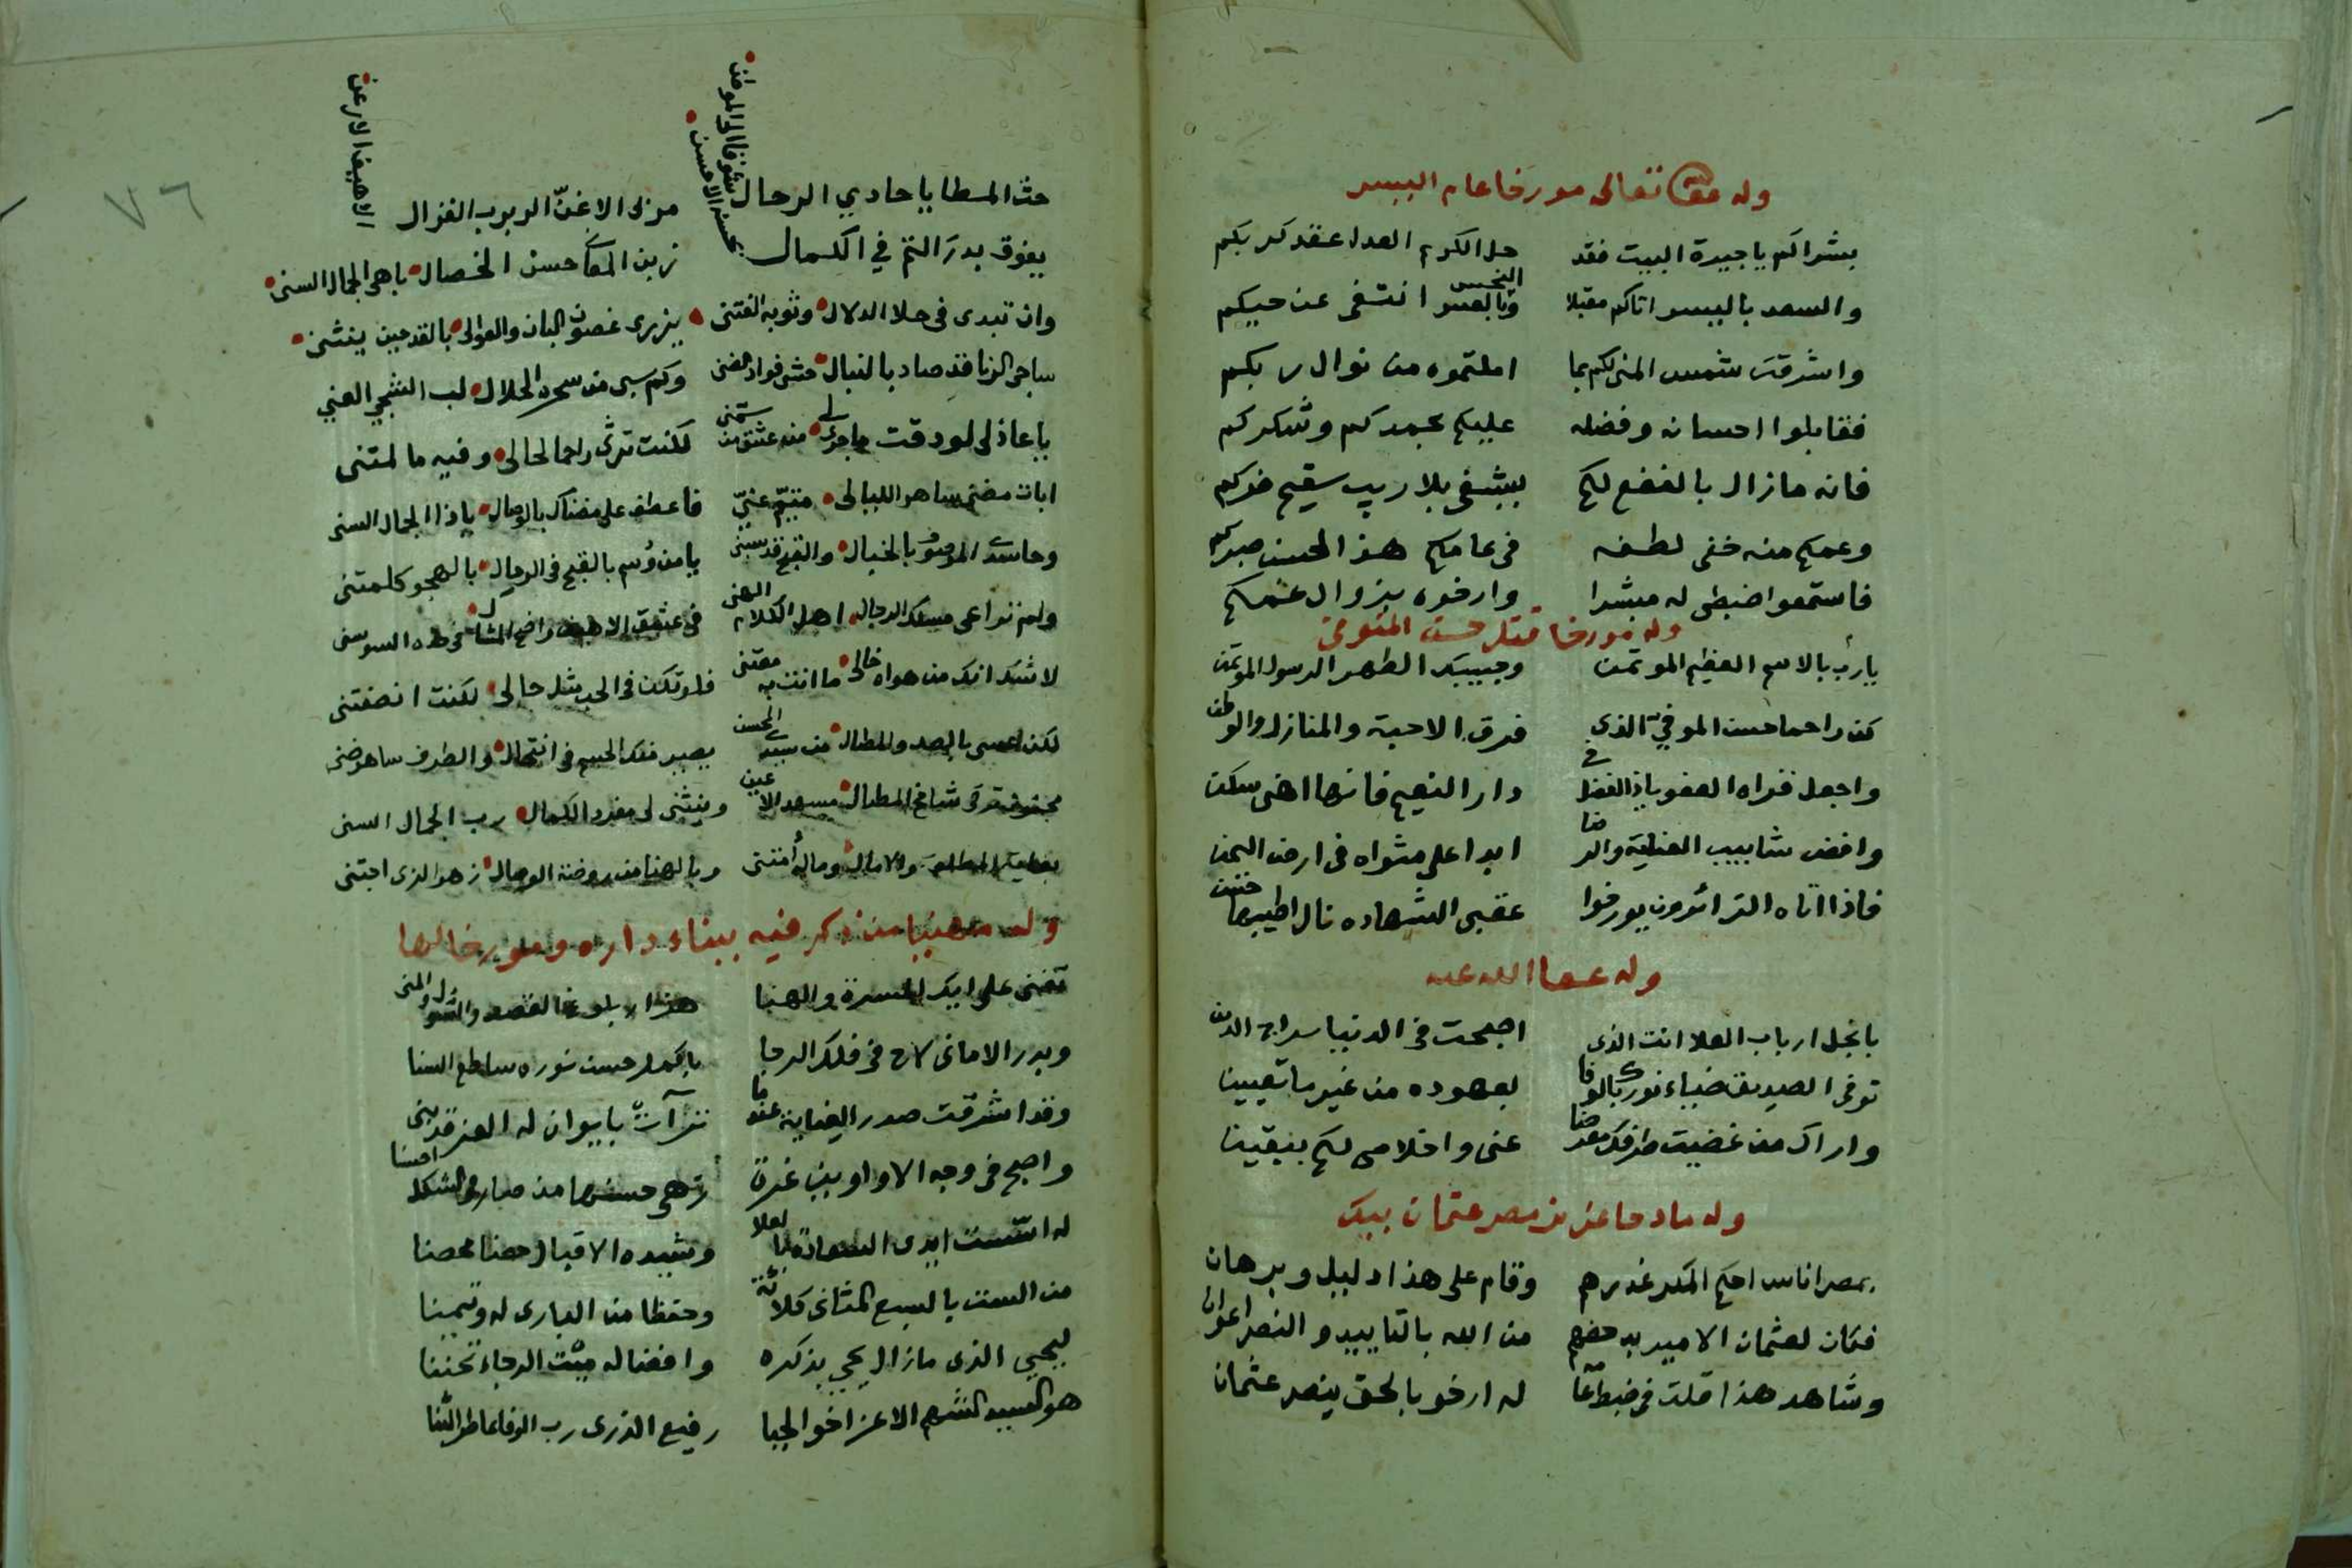 وله عفى تعالى مورخا عام اليسر
بشراكم يا جيرة البيت فقد حل الكرم العدا عقد كربكم
والسعد باليسر اتاكم مقبلا وبالعسر النحس انتفى عن حيكم
واشرقت شمس المنى لكم بما املتموه من نوال ربكم
فقابلوا احسانه وفضله عليكم بحمدكم وشكركم
فانه مازال بالنفع لكم يشفى بلا ريب سقيم ضركم
وعمكم منه خفى لطفه فى عامكم هذا لحسن صبركم
فاستمعوا ضبطى له مبشرا وارخوه بزوال غمكم
وله مورخا قتل حسن الموفى
يارب بالاسم العظيم الموتمن وحبيبك الطهر الرسول الموتمن
كن راحما حسن الموفي الذى فرق الاحبة والمنازل والوطن
واجعل قراه العفو ياذا الفضل فى دار النعيم فانها اهنى سكن
وافض شابيب العناية والرضا ابدا على مثواه فى ارض اليمن
فاذا اتاه الزائرون يورخوا عقبى الشهاده نال اطيبها حسن
وله عفا الله عنه
يا نجل ارباب العلا انت الذى اصبحت فى الدنيا سراج الدين
توفى الصديق ضياء نورك بالوفا لعهوده من غير ما تعيين
واراك من غضيت طرفك معرضا عنى واخلاصى لكم بيقين
وله مادحا عزيز مصر عثمان بيك
بمصر اناس احكم المكر غدرهم وقام على هذا دليل وبرهان
فكان لعثمان الامير بدحضهم من الله بالتاييد والنصر اعوان
وشاهد هذا قلت فى ضبط عامه له ارخو بالحق ينصر عثمان
٧٦
حث المطايا حادي الرحال بشوقنا او الموطن من لى الاغنّ الربرب الغزال الاهيف الارعن
يفوق بدر التم في الكمال بحسنه الاحسن زين المعانى حسن الخصال باهى الجمال السنى
وان تبدى فى حلا الدلال وثوبه الفتنى يزرى غصون البان والعوالى بالقد حين ينثنى
ساجى الرنا قد صاد بالنبال حشى فواد الضنى وكم سبى من سحره الحلال لب الشجي العني
يا عاذلى لو دقت ما جرى لى منه عشق من سمنى لكنت ترثى راحما لحالى وفيه ما لمتنى
ابات مضنى ساهر الليالى متيم عنيّ فاعطف على مضناك بالوصال ياذا الجمال السنى
وحاسدى الموصوف بالخبال والقبح قد سبنى يا من وسم بالقبح فى الرجال بالهجو كلمتنى
ولم تراعى مسلك الرجال اهل الكلام الهنى
لا شك انك من هواه خالى ما انت به معتنى فلو تكن فى الحب مثل حالى لكنت انصفتنى
لكن عسى بالصد والمطال من سيدى الحسن يصير منك الجسم فى انتحال والطرف ساهر ضنى
وينثنى لى مفرد الكمال رب الجمال السنى
وبالهنا من روضة الوصال زهو الذى اجتنى
وله مهنيا من ذكر فيه ببناء داره ومورخا لها
تغنى على ايك المسرة والهنا هزار بلوغ القصد والسول والمنى
وبدر الامانى لاح فى فلك الرجا باكمل حسن نوره ساطع السنا
وقد اشرقت صدر العناية عندما ترآت بايوان له العز قد بنى
واصبح فى وجه الاواوين غرة زهى حسنها من صار فى الشكل احسنا
له اسست ايدى السعادة بالعلا وشيده الاقبال حصنا محصنا
من الست بالسبع المثانى كلائة وحفظا من البارى له وتيمنا
ليحيي الذى مازال يحيى بذكره وافضاله ميت الرجاء تحننا
هو السيد الشهم الاعز اخو الحيا رفيع الذرى رب الوفا عاطر الثنا